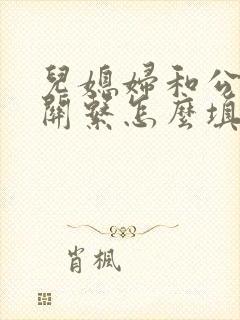 兒媳婦和公
關繫怎麼填
肖楓